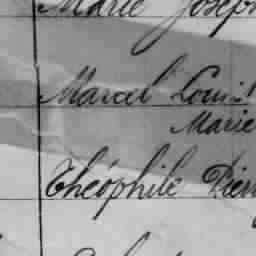 Marie Joseph
Marcel Louis
Marie
Théophile Pierr